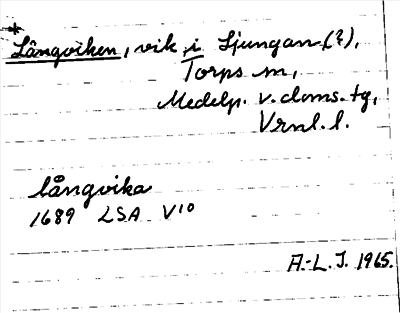 Långviken, vik i Ljungan (?),
Torps sn,
Medelp. v. doms. tg,
Vrnl. l.
långvika
1689 LSA V10
A.-L. J. 1965.